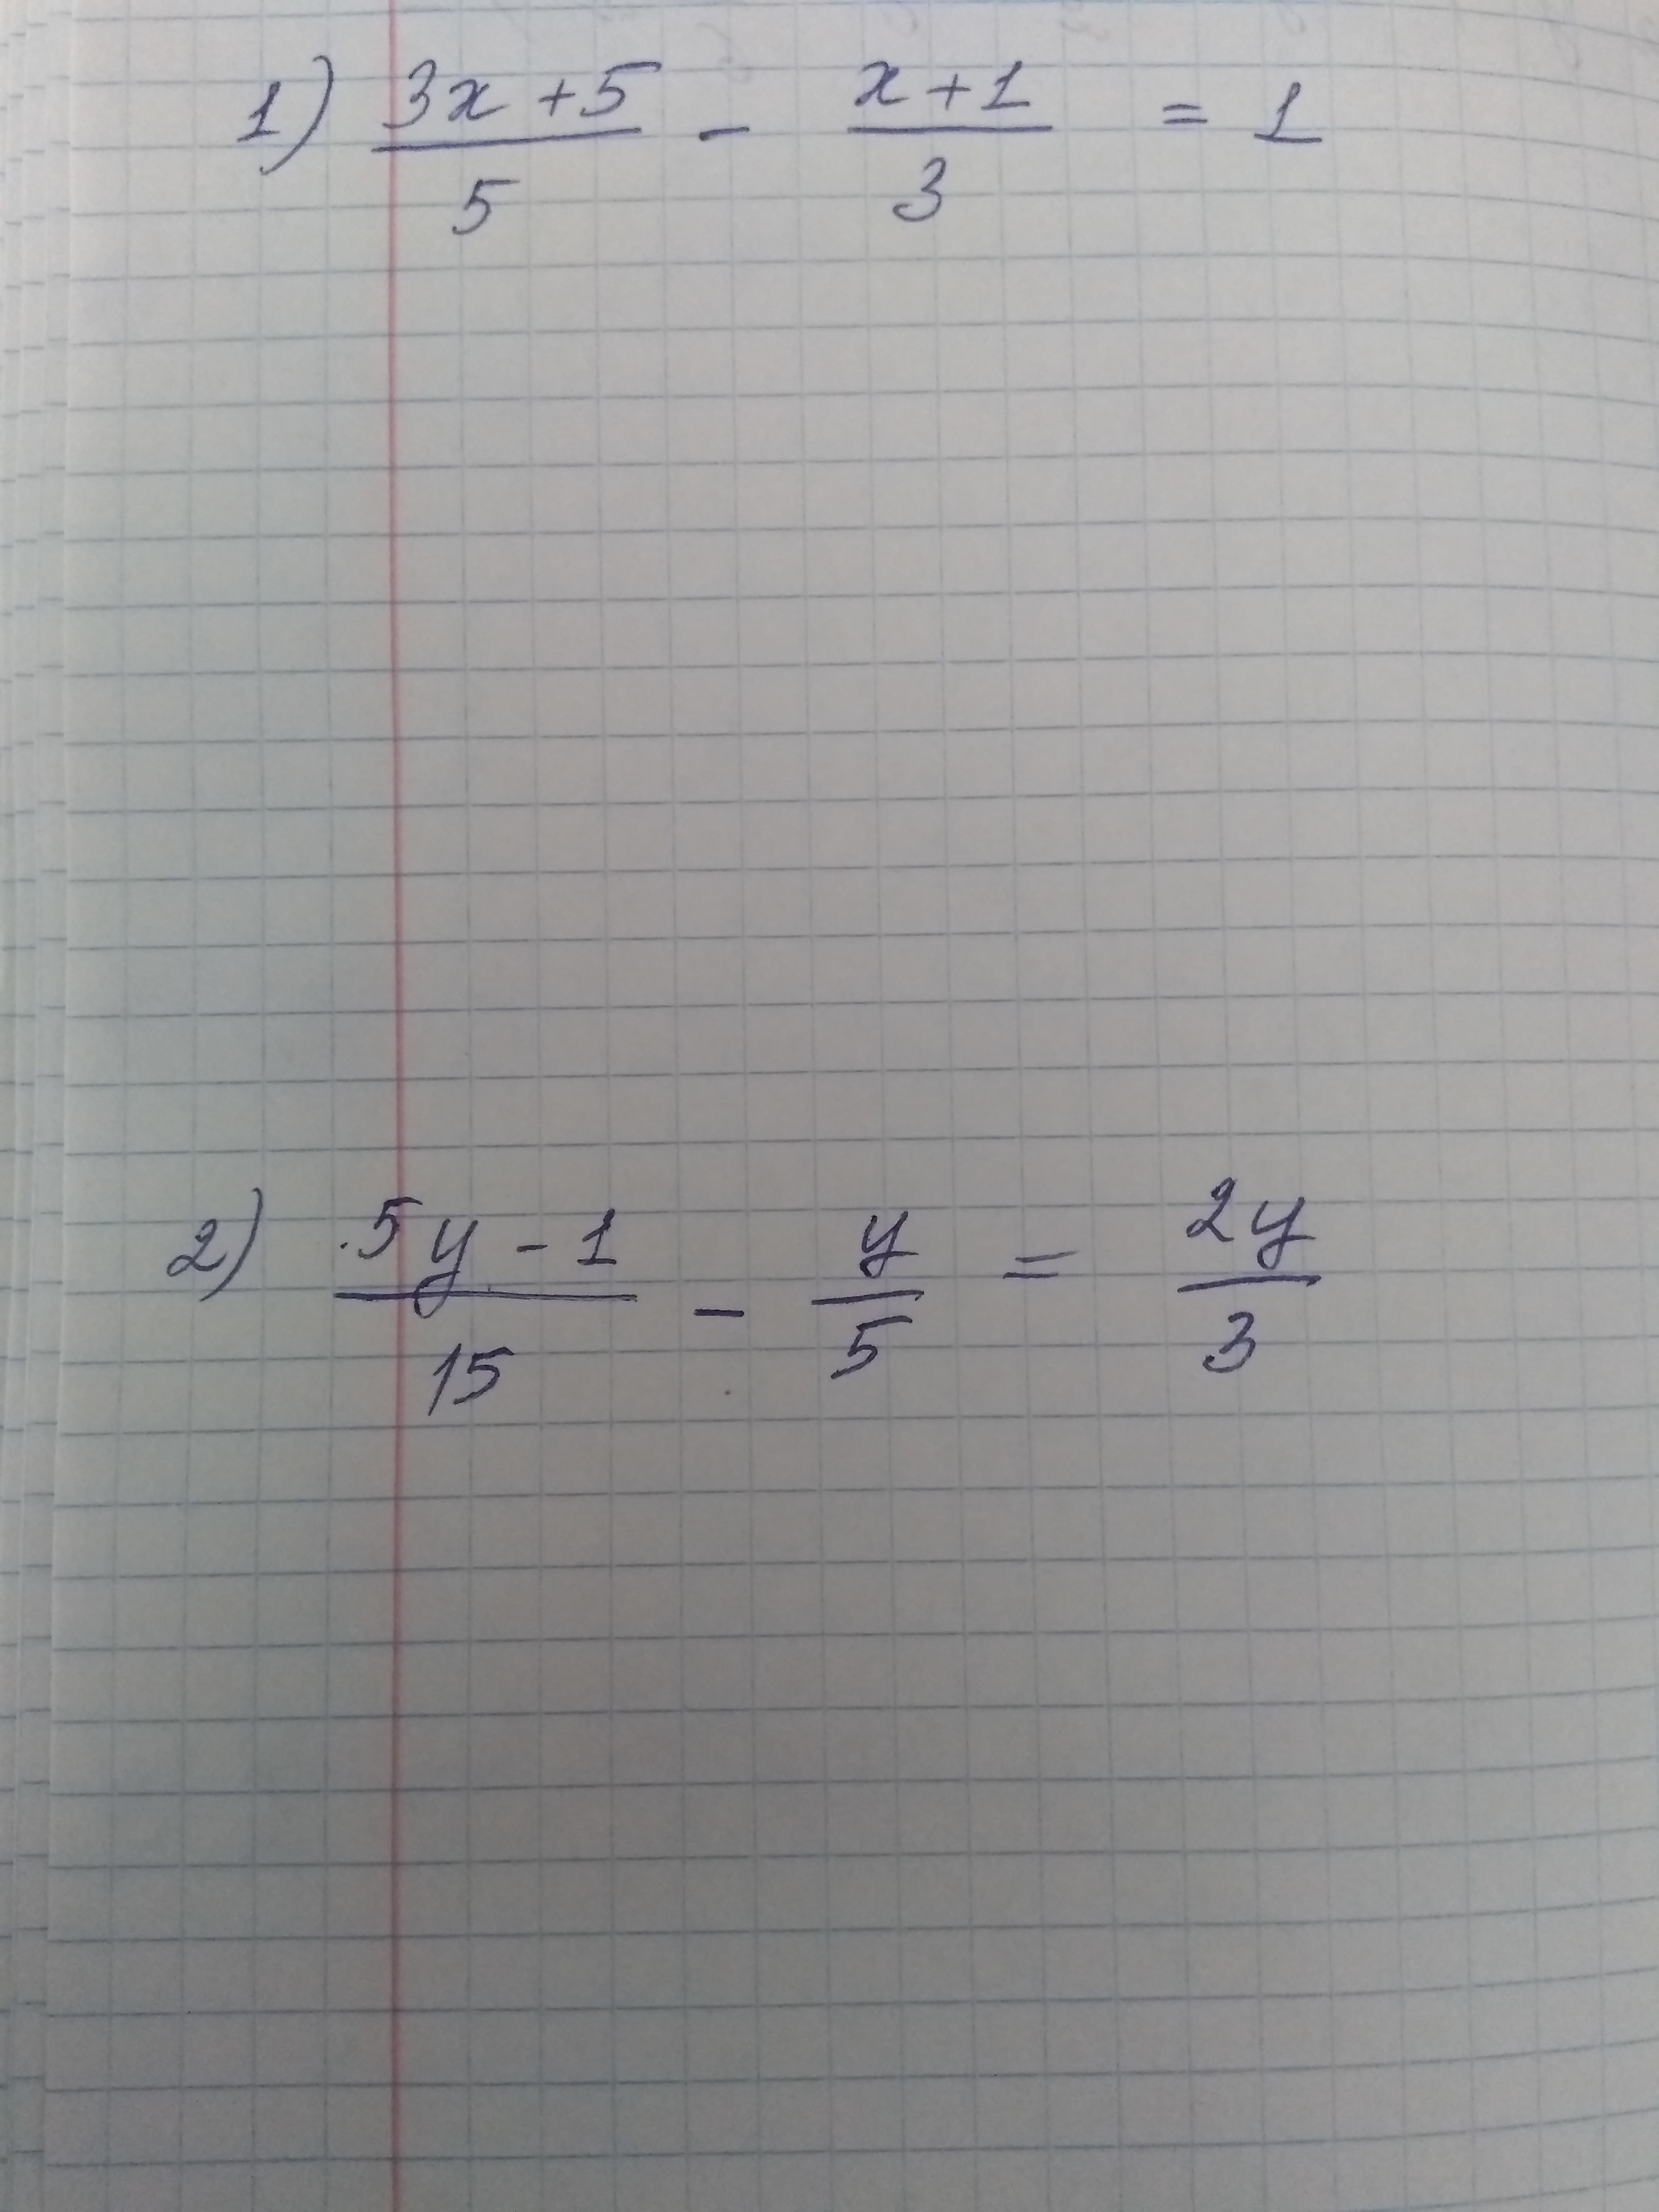 1) (3x+5)/5 - (x+1)/3 = 1
2) (5y-1)/15 - y/5 = 2y/3